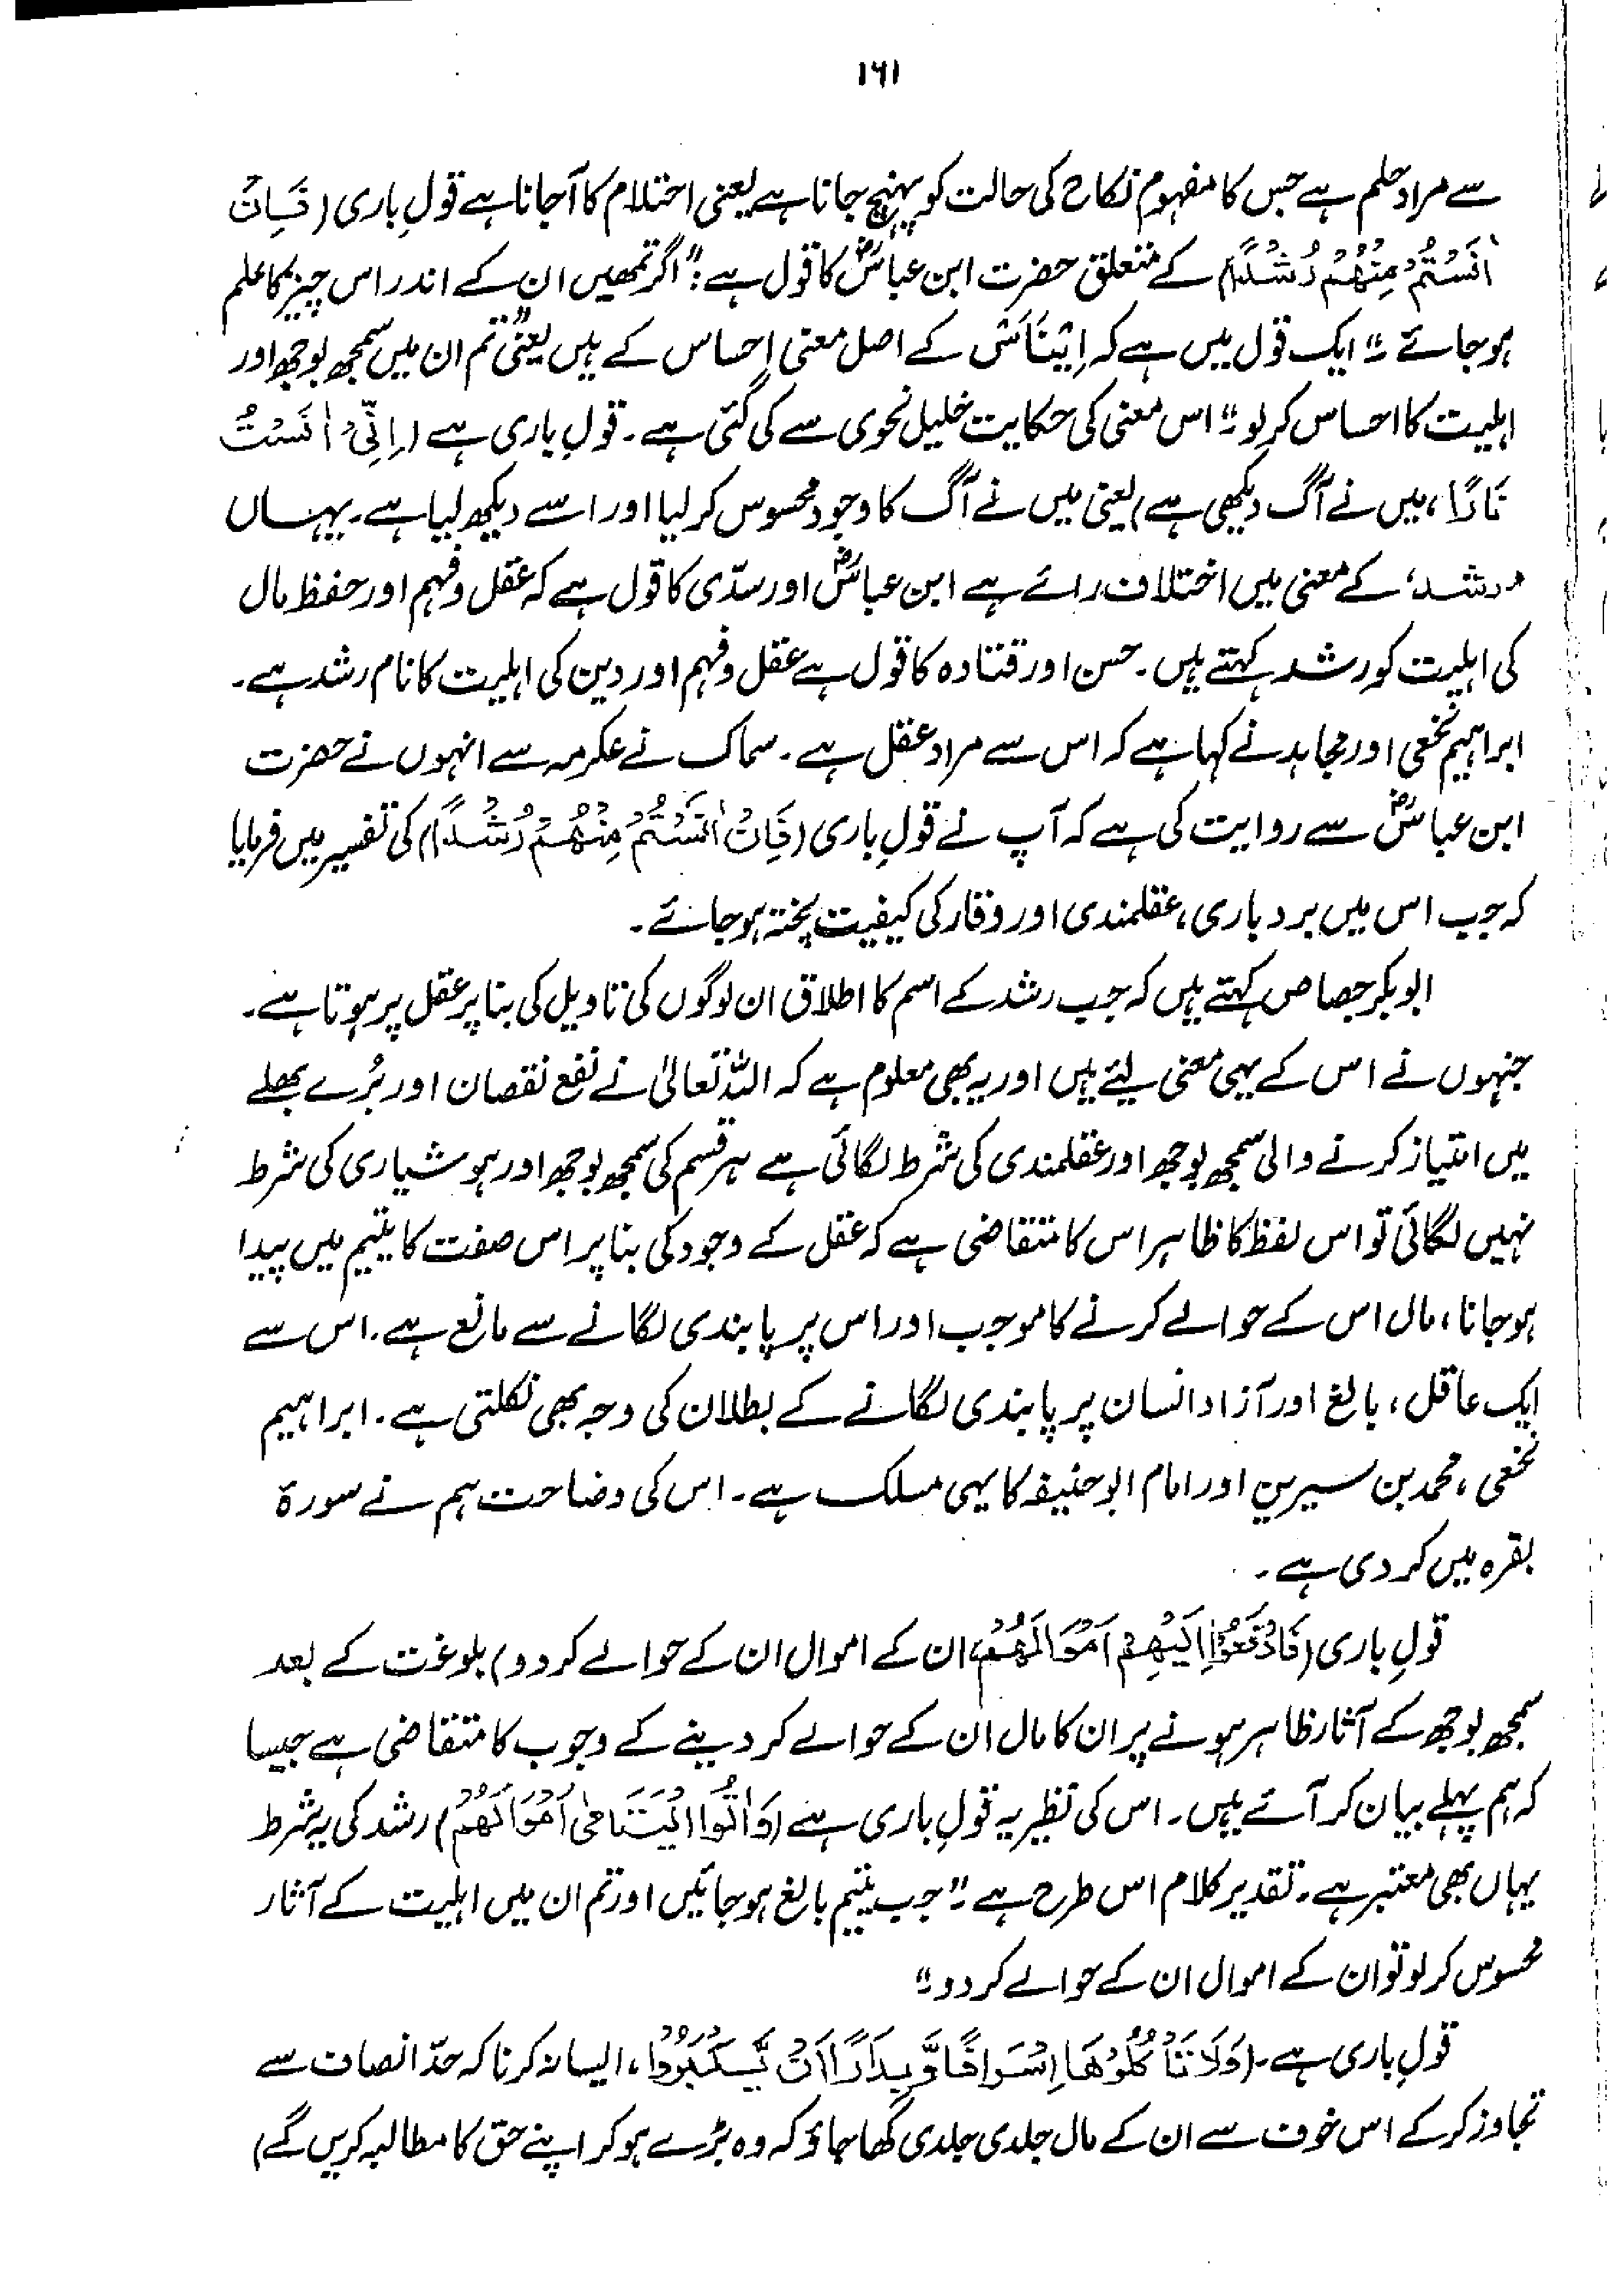 ۱۶۱
سے مراد حلم ہے جس کا مفہوم نکاح کی حالت کو پہنچ جانا ہے یعنی احتلام کا آجانا ہے قولِ باری (فَاِنْ
اٰنَسْتُمْ مِنْهُمْ رُشْدًا) کے متعلق حضرت ابن عباسؓ کا قول ہے: "اگر تمھیں ان کے اندر اس چیز کا علم
ہو جائے" ایک قول میں ہے کہ اِیْنَاسْ کے اصل معنی احساس کے ہیں یعنی "تم ان میں سمجھ بوجھ اور
اہلیت کا احساس کر لو" اس معنی کی حکایت خلیل نحوی سے کی گئی ہے۔ قولِ باری ہے (اِنِّیْ اٰنَسْتُ
نَارًا، میں نے آگ دیکھی ہے) یعنی میں نے آگ کا وجود محسوس کر لیا اور اسے دیکھ لیا ہے۔ یہاں
'رشد' کے معنی میں اختلاف رائے ہے ابن عباسؓ اور سدّی کا قول ہے کہ عقل وفہم اور حفظ مال
کی اہلیت کو رشد کہتے ہیں۔ حسن اور قتادہ کا قول ہے عقل وفہم اور دین کی اہلیت کا نام رشد ہے۔
ابراہیم نخعی اور مجاہد نے کہا ہے کہ اس سے مراد عقل ہے۔ سماک نے عکرمہ سے انہوں نے حضرت
ابن عباسؓ سے روایت کی ہے کہ آپ نے قولِ باری (فَاِنْ اٰنَسْتُمْ مِنْهُمْ رُشْدًا) کی تفسیر میں فرمایا
کہ جب اس میں بردباری، عقلمندی اور وقار کی کیفیت پختہ ہو جائے۔
ابوبکر جصاص کہتے ہیں کہ جب رشد کے اسم کا اطلاق ان لوگوں کی تاویل کی بنا پر عقل پر ہوتا ہے۔
جنہوں نے اس کے یہی معنی لیئے ہیں اور یہ بھی معلوم ہے کہ اللہ تعالیٰ نے نفع نقصان اور بُرے بھلے
میں امتیاز کرنے والی سمجھ بوجھ اور عقلمندی کی شرط لگائی ہے ہر قسم کی سمجھ بوجھ اور ہوشیاری کی شرط
نہیں لگائی تو اس لفظ کا ظاہر اس کا متقاضی ہے کہ عقل کے وجود کی بنا پر اس صفت کا یتیم میں پیدا
ہو جانا، مال اس کے حوالے کرنے کا موجب اور اس پر پابندی لگانے سے مانع ہے۔ اس سے
ایک عاقل، بالغ اور آزاد انسان پر پابندی لگانے کے بطلان کی وجہ بھی نکلتی ہے۔ ابراہیم
نخعی، محمد بن سیرین اور امام ابو حنیفہ کا یہی مسلک ہے۔ اس کی وضاحت ہم نے سورۃ
بقرہ میں کر دی ہے۔
قولِ باری (فَادْفَعُوْا اِلَیْهِمْ اَمْوَالَهُمْ، ان کے اموال ان کے حوالے کر دو) بلوغت کے بعد
سمجھ بوجھ کے آثار ظاہر ہونے پر ان کا مال ان کے حوالے کر دینے کے وجوب کا متقاضی ہے جیسا
کہ ہم پہلے بیان کر آئے ہیں۔ اس کی نظیر یہ قولِ باری ہے (وَاٰتُوا الْیَتَامٰی اَمْوَالَهُمْ) رشد کی یہ شرط
یہاں بھی معتبر ہے۔ تقدیر کلام اس طرح ہے "جب یتیم بالغ ہو جائیں اور تم ان میں اہلیت کے آثار
محسوس کر لو تو ان کے اموال ان کے حوالے کر دو"
قولِ باری ہے۔ (وَلَا تَأْکُلُوْهَا اِسْرَافًا وَّبِدَارًا اَنْ یَّکْبَرُوْا، ایسا نہ کرنا کہ حدّ انصاف سے
تجاوز کر کے اس خوف سے ان کے مال جلدی جلدی کھا جاؤ کہ وہ بڑے ہو کر اپنے حق کا مطالبہ کریں گے)